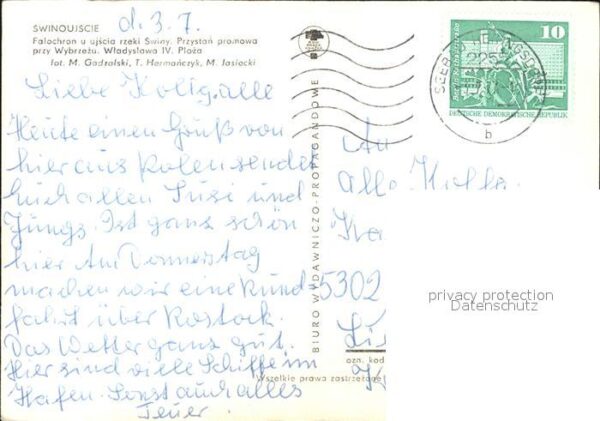 d. 3. 7.
SWINOUJSCIE
Falochron u ujścia rzeki Świny. Przystań promowa
przy Wybrzeżu. Władysława IV. Plaża
fot. M. Gadzalski, T. Hermańczyk, M. Jasiecki
Liebe Kollg. alle
Heute einen Gruß von
hier aus Polen sendet
Euch allen Susi und
Jungs. Ist ganz schön
hier Am Donnerstag
machen wir eine Rund
fahrt über Rostock.
Das Wetter ganz gut.
Hier sind viele Schiffe im
Hafen. Sonst auch alles
Teuer.
BIURO WYDAWNICZO-PROPAGANDOWE
10
DEUTSCHE DEMOKRATISCHE REPUBLIK
SEEB
2255
b
An
alle
5302
privacy protection
Datenschutz
ozn. kod
Wszelkie prawa zastrzeżone